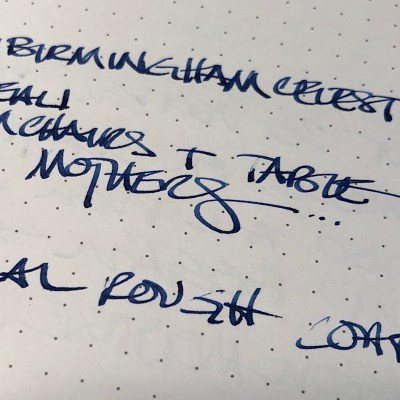 BIRMINGHAM CELEST
EALI
MCHAIRS + TABLE
MOTHERS...
AL ROUGH COA